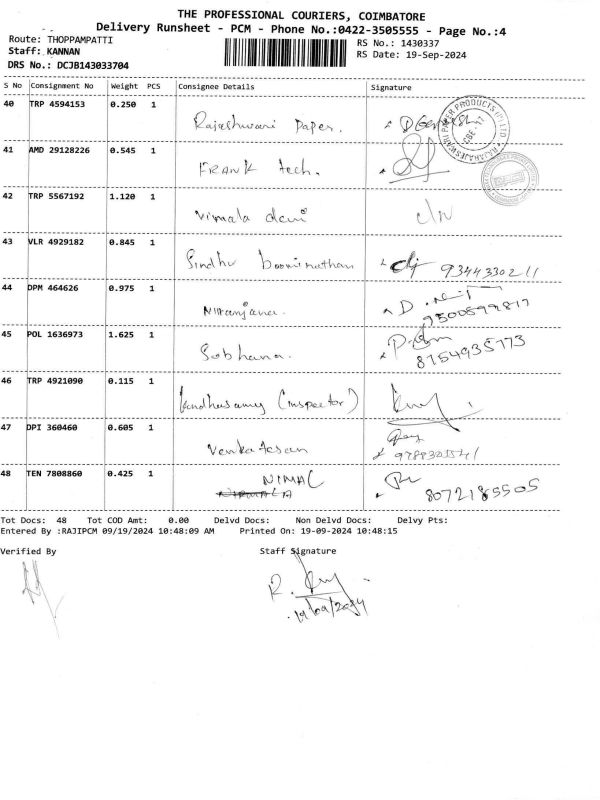 THE PROFESSIONAL COURIERS, COIMBATORE
Delivery Runsheet - PCM - Phone No.:0422-3505555 - Page No.:4
Route: THOPPAMPATTI
RS No.: 1430337
Staff: KANNAN
RS Date: 19-Sep-2024
DRS No.: DCJB143033704
S No Consignment No Weight PCS Consignee Details Signature
40 TRP 4594153 0.250 1
Rajeshwari paper.
41 AMD 29128226 0.545 1
FRANK tech.
42 TRP 5567192 1.120 1
vimala devi
43 VLR 4929182 0.845 1
Sindhu boominathan 9344330211
44 DPM 464626 0.975 1
Niranjana. 9500599817
45 POL 1636973 1.625 1
Sobhana. 8754935773
46 TRP 4921090 0.115 1
kandhasamy (inspector)
47 DPI 360460 0.605 1
Venkatesan
48 TEN 7808860 0.425 1
NIMAL
8072185505
Tot Docs: 48 Tot COD Amt: 0.00 Delvd Docs: Non Delvd Docs: Delvy Pts:
Entered By :RAJIPCM 09/19/2024 10:48:09 AM Printed On: 19-09-2024 10:48:15
Verified By Staff Signature
19/09/2024